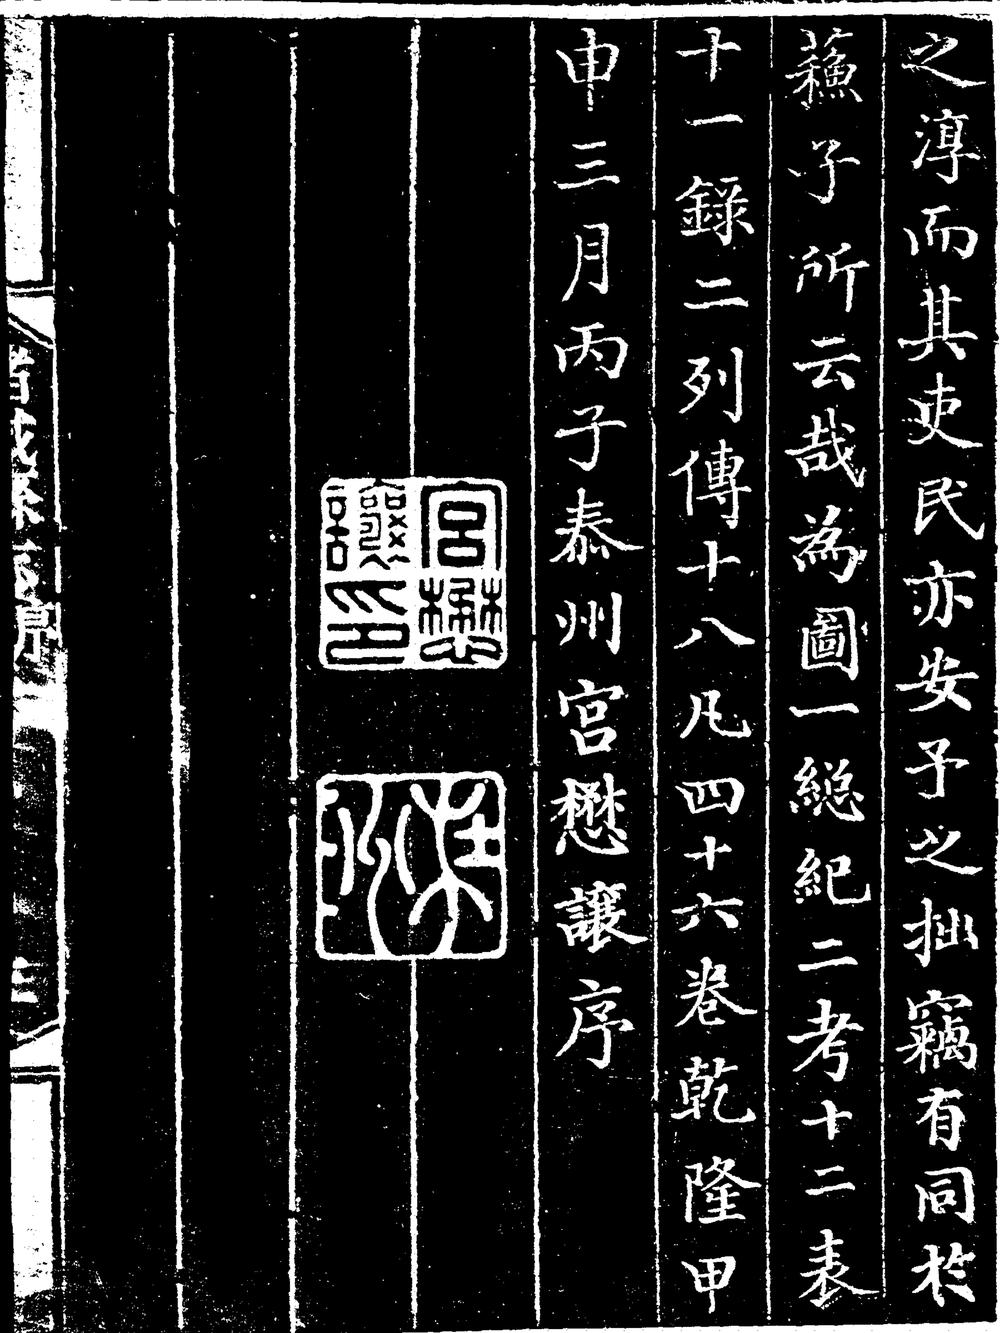 之淳而其吏民亦安予之拙竊有同於
蘓子所云哉為圖一總紀二考十二表
十一錄二列傳十八凡四十六卷乾隆甲
申三月丙子泰州宮懋讓序
宮懋讓印